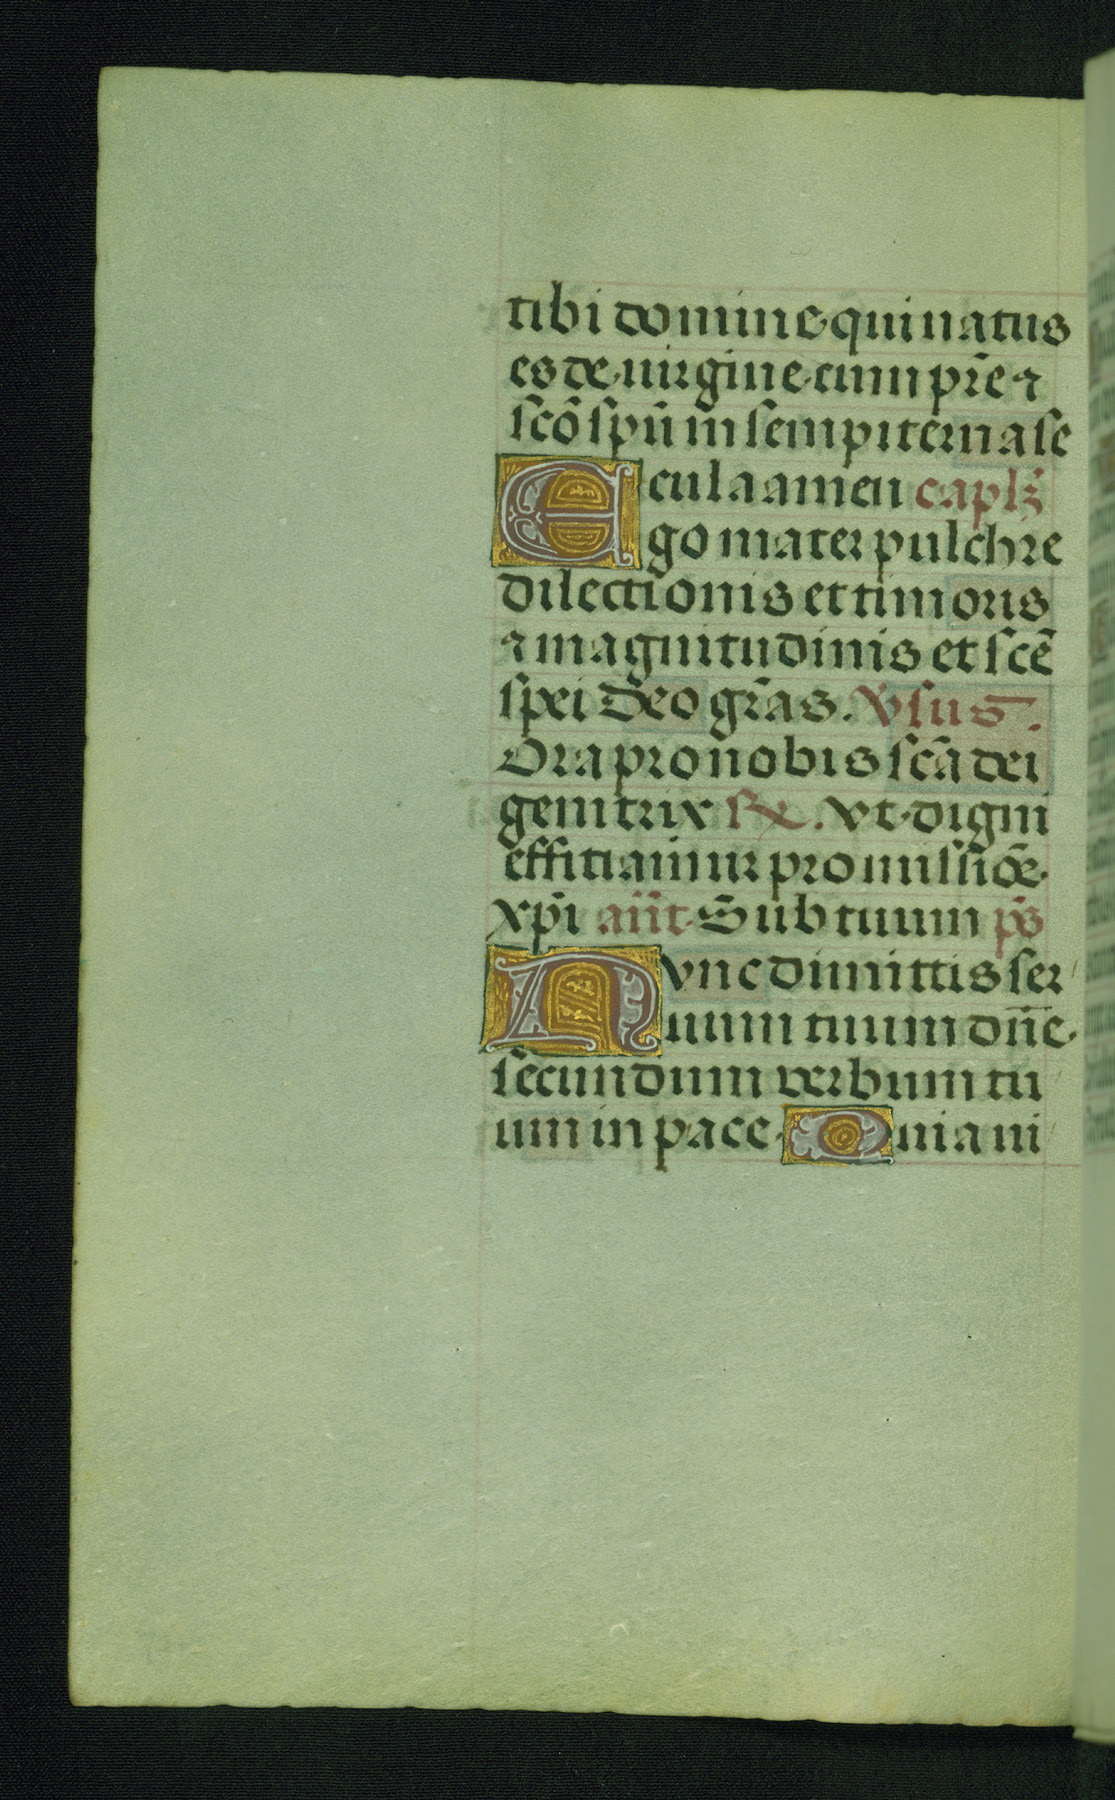 tibi domine qui natus
es de uirgine cum pr̄e ⁊
ſc̄o ſpū in ſempiterna ſe
cula amen capl̄ꝫ
Ego mater pulchre
dilectionis et timoris
⁊ magnitudinis et ſcē
ſpei Deo gr̄as. v̄ſus.
Ora pro nobis ſcā dei
genitrix ℟. vt digni
effitiamur promiſſiōe
xp̄i añt Sub tuum p̄s
Nvnc dimittis ſer
uum tuum dn̄e
ſecundum verbum tu
um in pace Quia ui